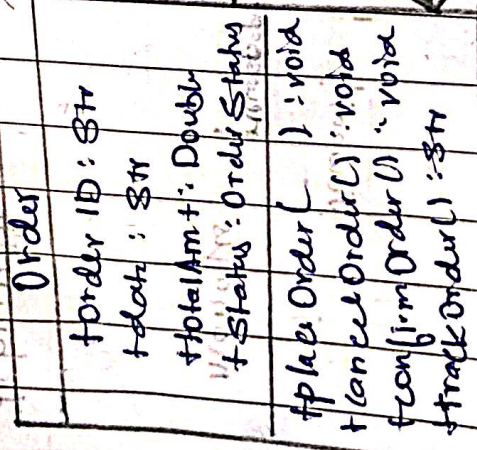 Order
+order ID : Str
+date : Str
+totalAmt : Double
+Status : Order Status
+place Order ( ) : void
+cancel Order () : void
+confirm Order () : void
+track Order () : Str